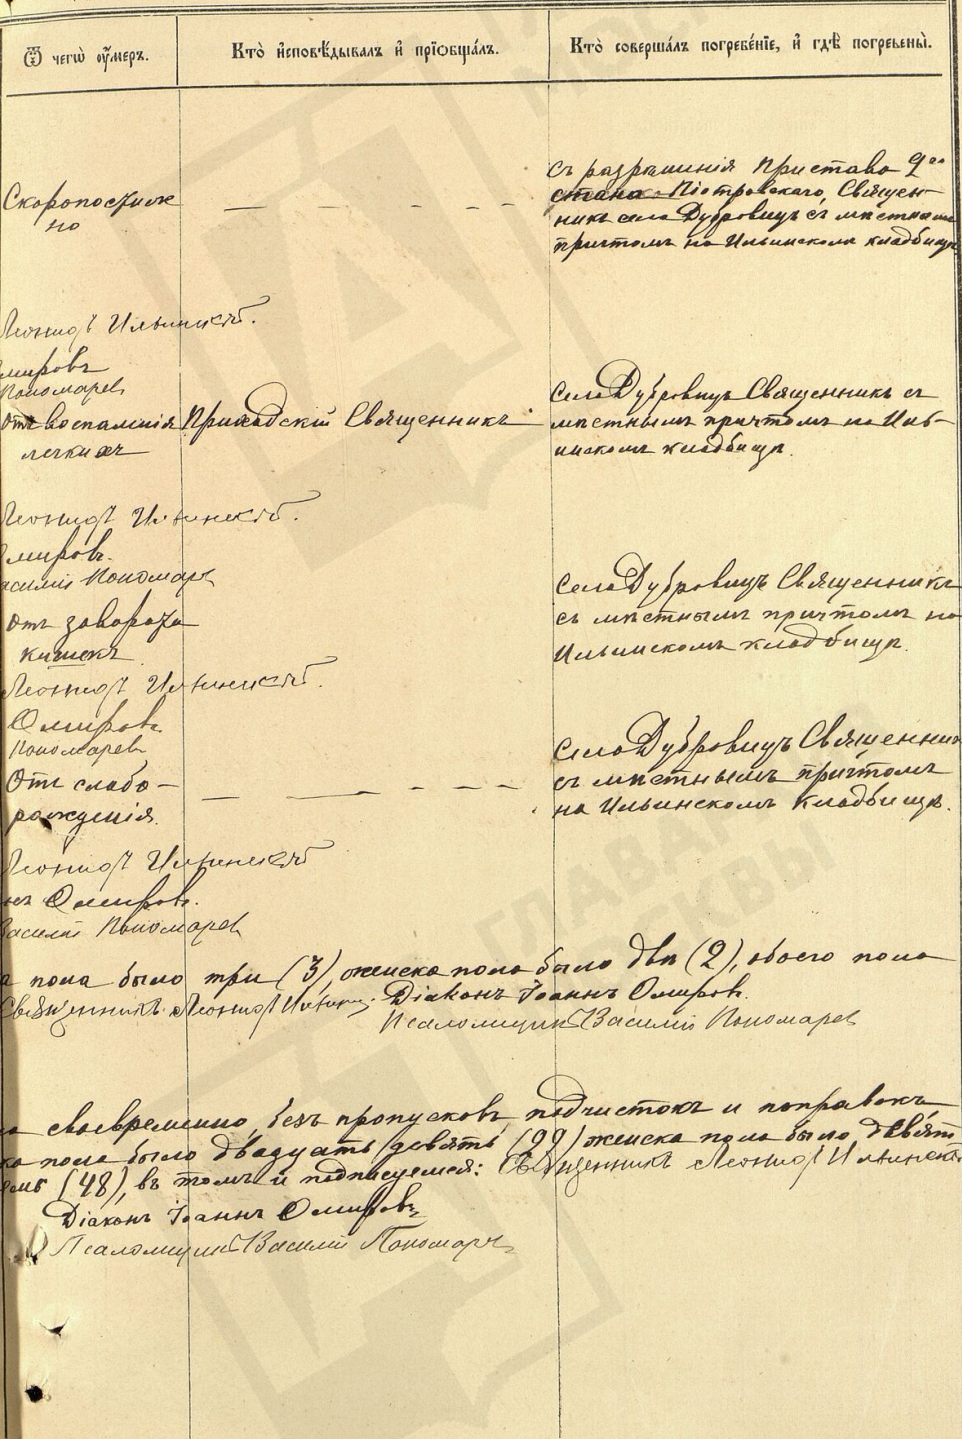 Ѿ чегѡ̀ ѹ́меръ.
Кто̀ и҆сповѣ́дывалъ и҆ прїѻбща́лъ.
Кто̀ соверша́лъ погребе́нїе, и҆ гдѣ̀ погребены̀.
Скоропостиж
но
съ разрѣшенія Пристава 2го
стана Петровского, Священ-
никъ села Дубровицъ съ мѣстнымъ
причтомъ на Ильинскомъ кладбищѣ
Леонидъ Ильинскій.
мировъ
Пономарев
Отъ воспаленія
легкихъ
Приходскій Священникъ
Села Дубровицъ Священникъ съ
мѣстнымъ причтомъ на Иль-
инскомъ кладбищѣ.
Леонидъ Ильинскій.
мировъ.
асилій Пономарев
Отъ заворота
кишекъ
Села Дубровицъ Священникъ
съ мѣстнымъ причтомъ на
Ильинскомъ кладбищѣ.
Леонидъ Ильинскій.
Омировъ.
Пономарев
Отъ слабо-
рожденія.
Села Дубровицъ Священник
съ мѣстнымъ причтомъ
на Ильинскомъ кладбищѣ.
Леонидъ Ильинскій
нъ Омировъ.
Василій Пономарев
а пола было три (3), женска пола было двѣ (2), обоего пола
Священникъ Леонидъ Ильинскій. Діаконъ Іоаннъ Омировъ.
Псаломщикъ Василій Пономарев
а своевременно, безъ пропусковъ, подчистокъ и поправокъ
ка пола было двадцать девять (29) женска пола было девят
емь (48), въ томъ и подписуемся: Священникъ Леонидъ Ильинскій.
Діаконъ Іоаннъ Омировъ
Псаломщикъ Василій Пономарев